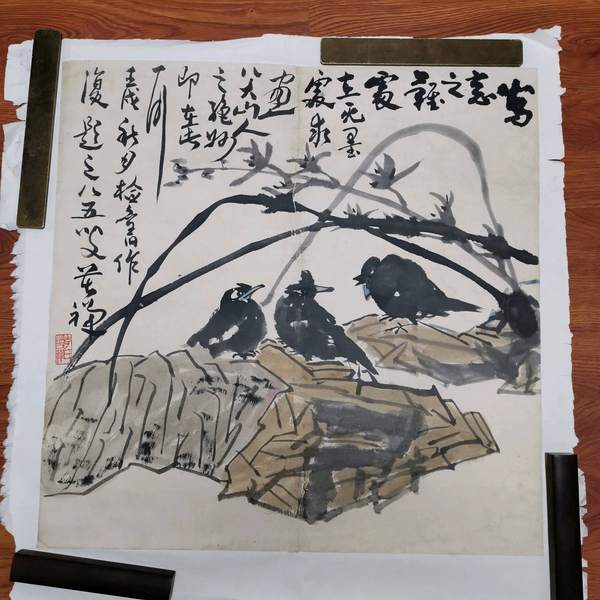 寫
意
之
難
處
在无墨
處求
畫
八大山人
之絕妙
即在此
壬戌秋夕檢舊作
復題之八五叟苦禪